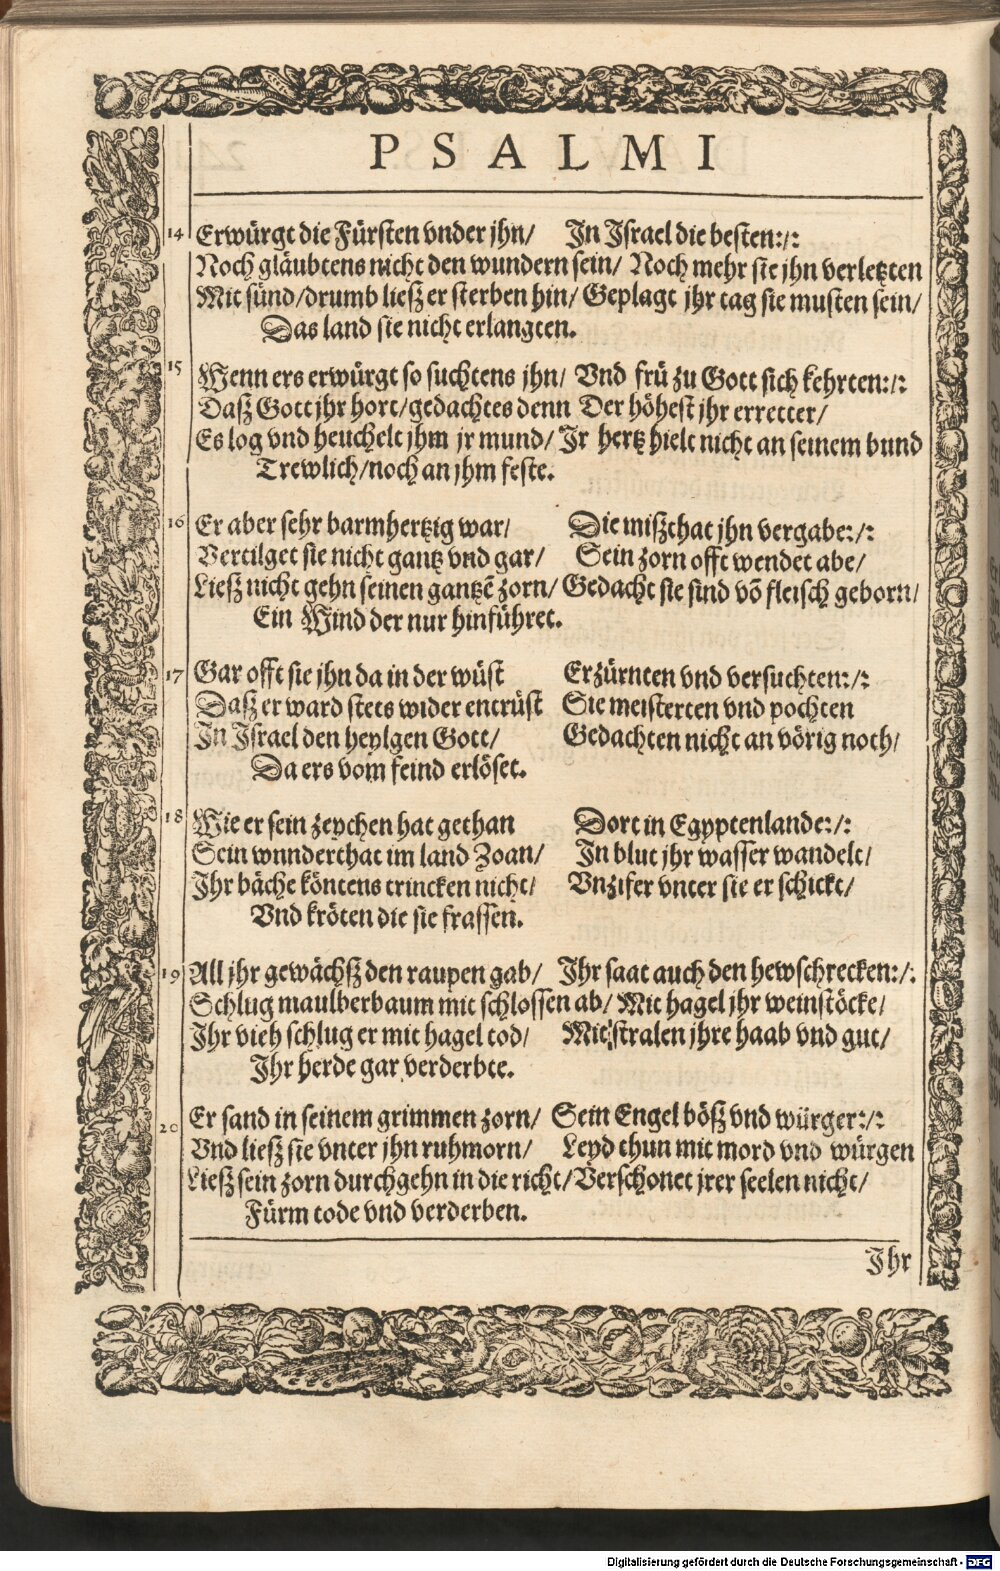 PSALMI
14 Erwürgt die Fürsten vnder jhn/ In Israel die besten:/:
Noch gläubtens nicht den wundern sein/ Noch mehr sie jhn verletzten
Mit sünd/drumb ließ er sterben hin/ Geplagt jhr tag sie musten sein/
Das land sie nicht erlangten.
15 Wenn ers erwürgt so suchtens jhn/ Vnd frü zu Gott sich kehrten:/:
Daß Gott jhr hort/gedachtes denn Der höhest jhr erretter/
Es log vnd heuchelt jhm jr mund/ Ir hertz hielt nicht an seinem bund
Trewlich/noch an jhm feste.
16 Er aber sehr barmhertzig war/ Die mißthat jhn vergabe:/:
Vertilget sie nicht gantz vnd gar/ Sein zorn offt wendet abe/
Ließ nicht gehn seinen gantzẽ zorn/ Gedacht sie sind võ fleisch geborn/
Ein Wind der nur hinführet.
17 Gar offt sie jhn da in der wüst Erzürnten vnd versuchten:/:
Daß er ward stets wider entrüst Sie meisterten vnd pochten
In Israel den heylgen Gott/ Gedachten nicht an vörig noth/
Da ers vom feind erlöset.
18 Wie er sein zeychen hat gethan Dort in Egyptenlande:/:
Sein wnnderthat im land Zoan/ In blut jhr wasser wandelt/
Ihr bäche köntens trincken nicht/ Vnzifer vnter sie er schickt/
Vnd kröten die sie frassen.
19 All jhr gewächß den raupen gab/ Ihr saat auch den hewschrecken:/:
Schlug maulberbaum mit schlossen ab/ Mit hagel jhr weinstöcke/
Ihr vieh schlug er mit hagel tod/ Mit stralen jhre haab vnd gut/
Ihr herde gar verderbte.
20 Er sand in seinem grimmen zorn/ Sein Engel böß vnd würger:/:
Vnd ließ sie vnter jhn ruhmorn/ Leyd thun mit mord vnd würgen
Ließ sein zorn durchgehn in die richt/ Verschonet jrer seelen nicht/
Fürm tode vnd verderben.
Ihr
Digitalisierung gefördert durch die Deutsche Forschungsgemeinschaft - DFG